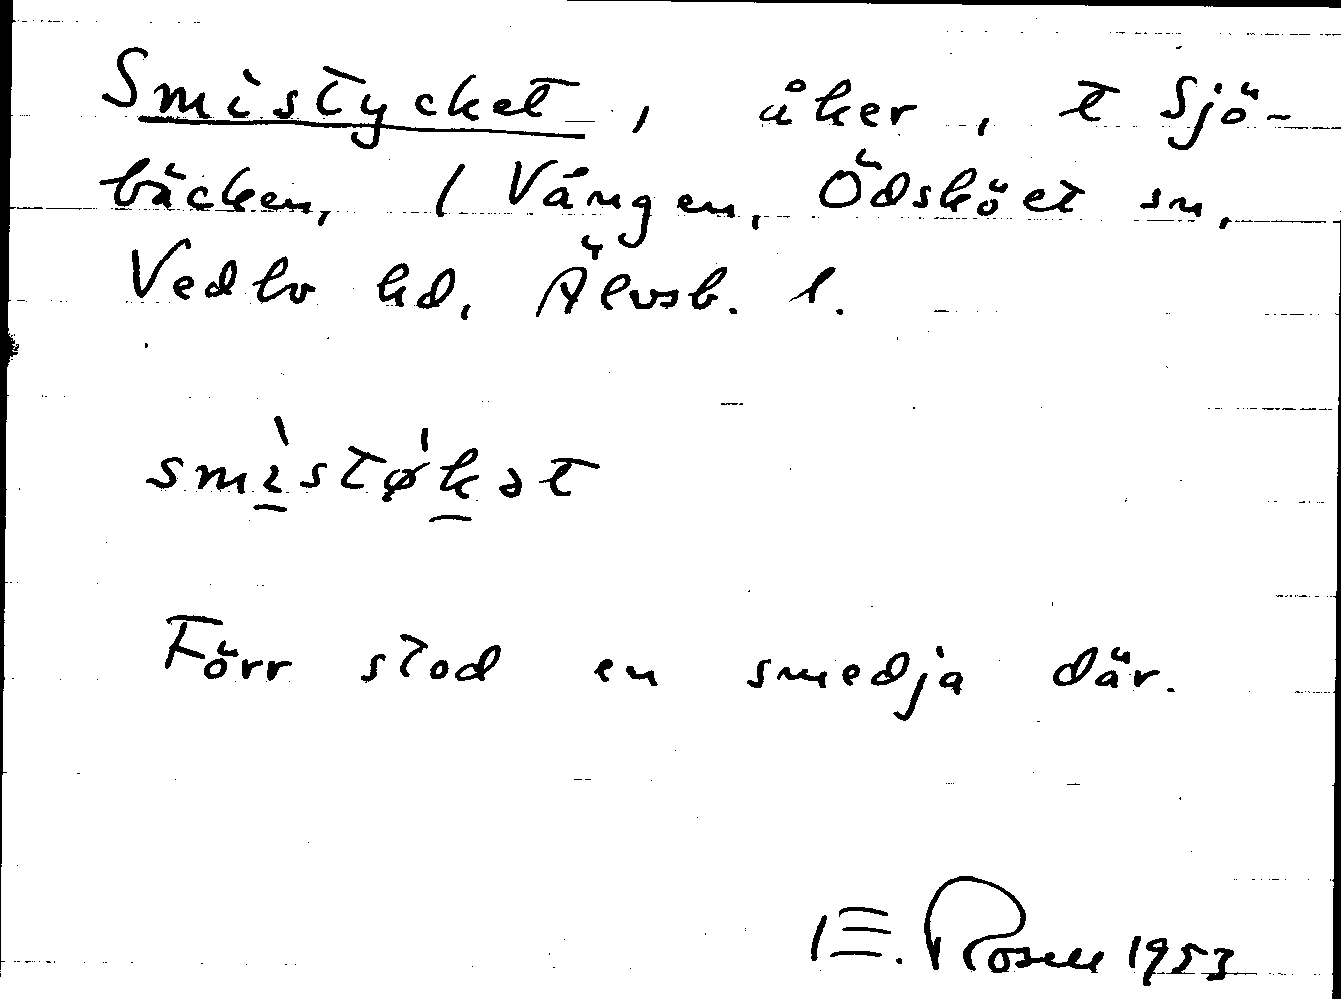 Smistycket, åker, t Sjö-
bäcken, 1 Vången, Ödsköet sn,
Vedbo hd, Älvsb. l.
smìstøkət
Förr stod en smedja där.
E. Rosell 1953